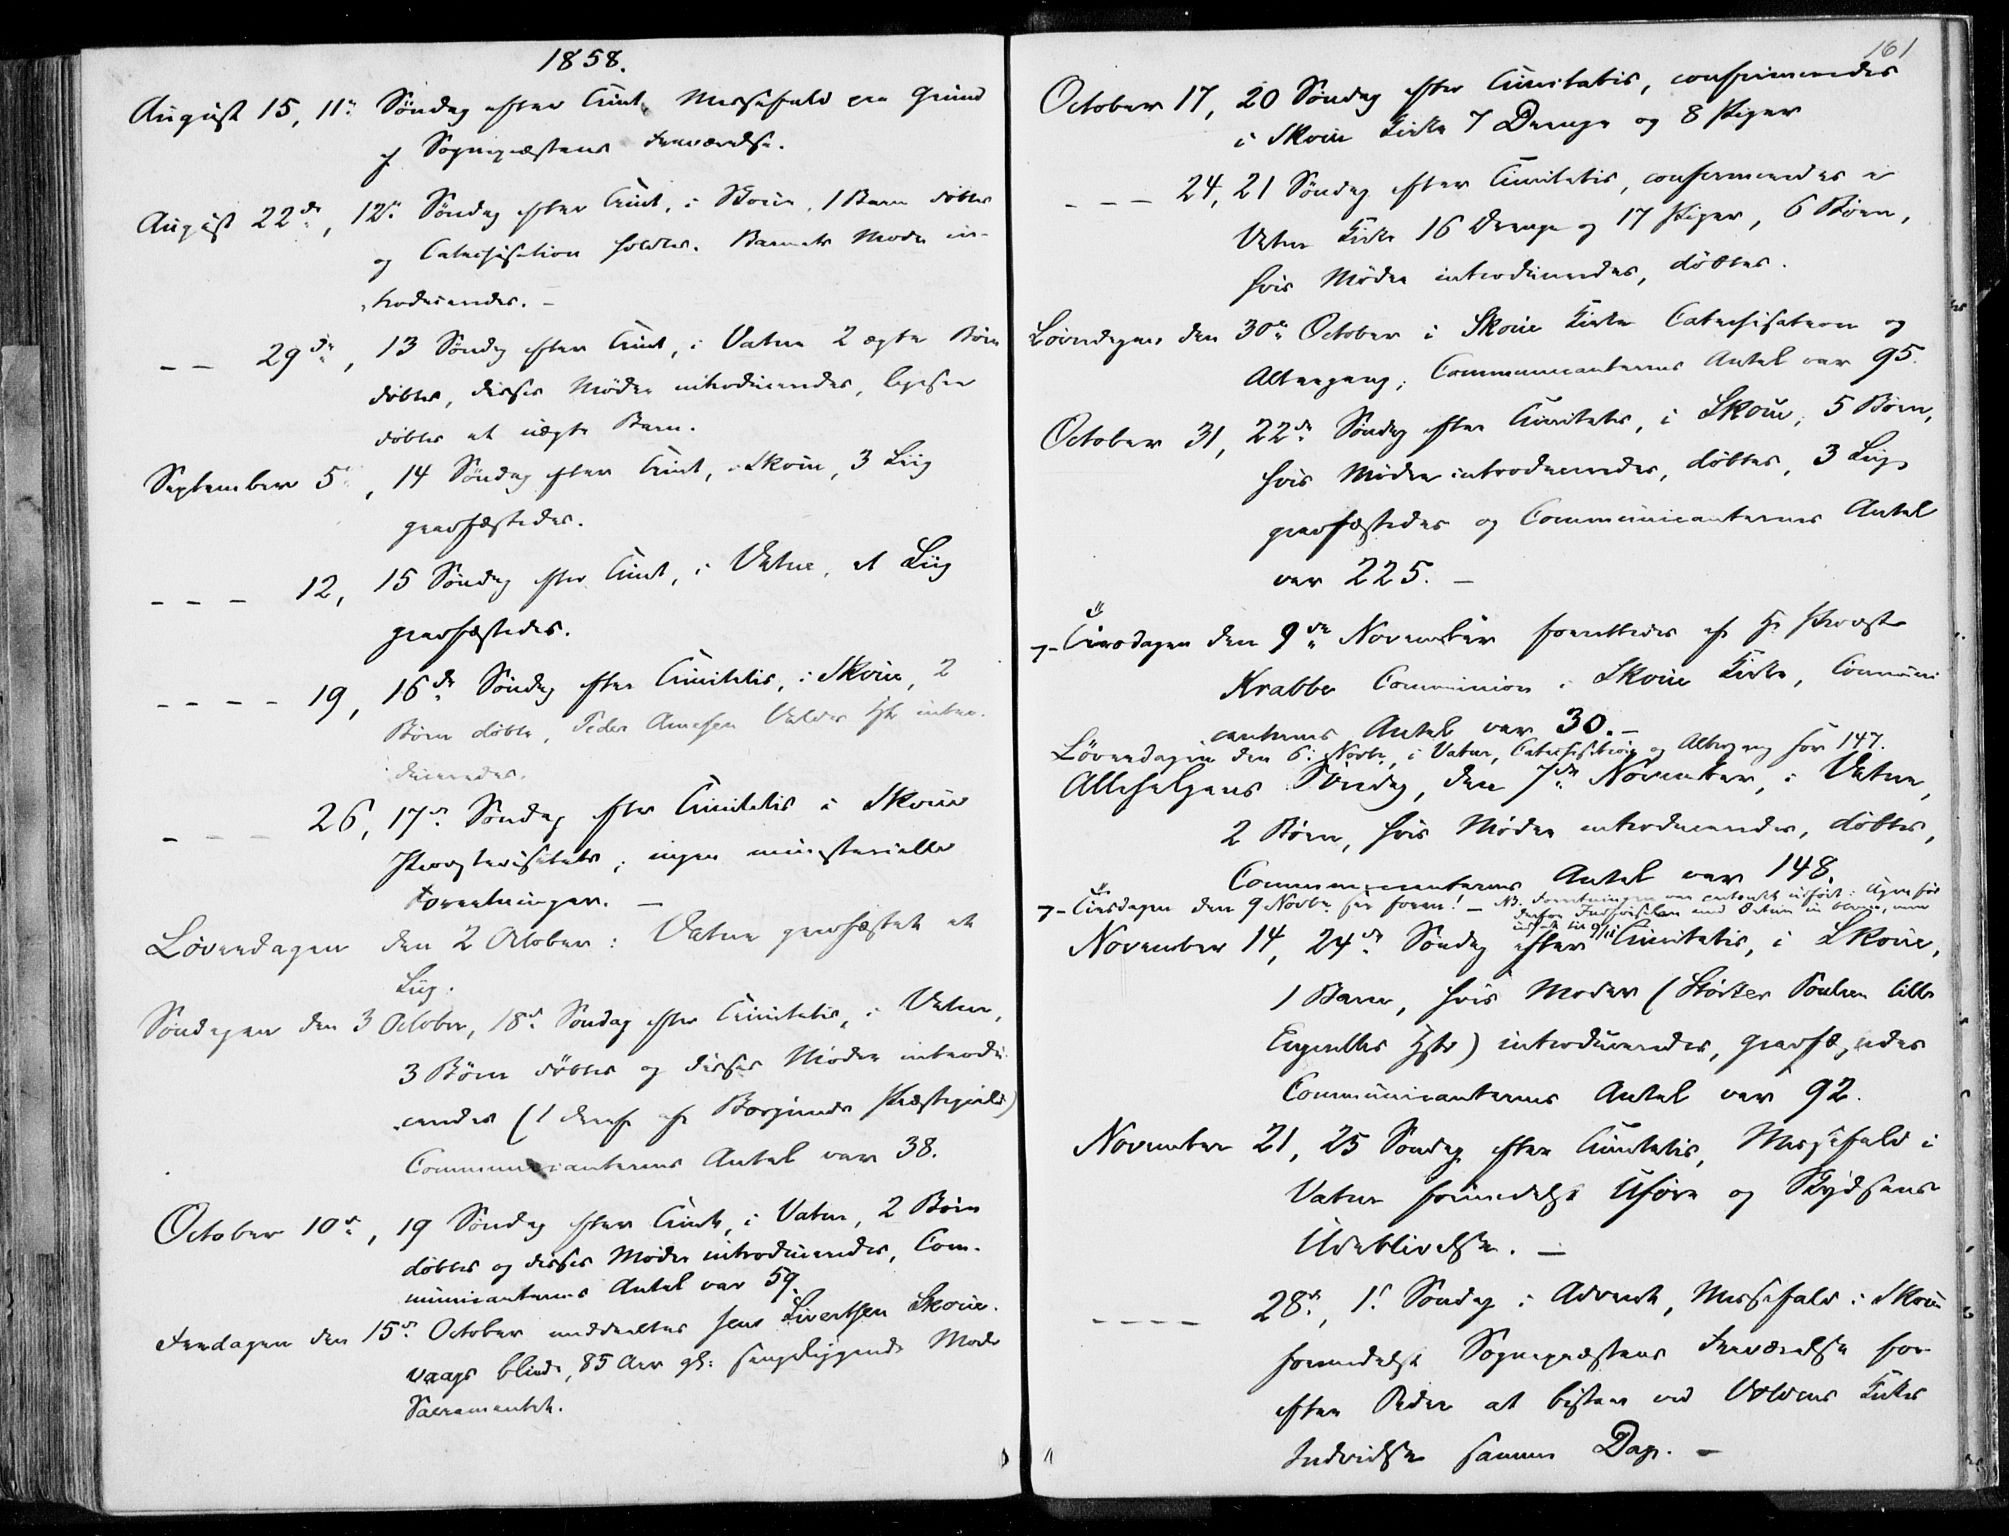 1858.
August 15, 11te Søndag efter Trint. Messefald paa Grund
af Sognepræstens Fraværelse.
August 22de, 12te Søndag efter Trint, i Skoue, 1 Barn døbtes
og Catechisation holdtes. Barnets Moder in-
troduceredes. –
– – 29de, 13 Søndag efter Trint, i Vatne 2 ægte Børn
døbtes, disses Mødre introduceredes, ligesaa
døbtes et uægte Barn.
September 5te, 14 Søndag efter Trint, i Skoue, 3 Liig
gravfæstedes.
– – – 12, 15 Søndag efter Trint, i Vatne, et Liig
gravfæstedes.
– – – – 19, 16de Søndag efter Trinitatis, i Skoue, 2
Børn døbte, Peder Hst intro-
duceredes.
– – – 26, 17de Søndag efter Trinitatis i Skoue
Provstevisitats; ingen ministerielle
Forretninger. –
Løverdagen den 2 October i Vatne gravfæstet et
Liig.
Søndagen den 3 October, 18de Søndag efter Trinitatis, i Vatne,
3 Børn døbtes og disses Mødre introdu-
ceredes (1 deraf af Borgunds Præstegjeld)
Communicanternes Antal var 38.
October 10de, 19 Søndag efter Trint, i Vatne, 2 Børn
døbtes og disses Mødre introduceredes, Com-
municanternes Antal var 59.
Fredagen den 15de October meddeeltes Jens Sivertsen Skoue-
vaags blinde, 85 Aar gl: sengeliggende Moder
Sacramentet.
161
October 17, 20 Søndag efter Trinitatis, confirmeredes
i Skoue Kirke 7 Drenge og 8 Piger
– – – 24, 21 Søndag efter Trinitatis, confirmeredes i
Vatne Kirke 16 Drenge og 17 Piger, 6 Børn,
hvis Mødre introduceredes, døbtes.
Løverdagen den 30te October i Skoue Kirke Catechisation og
Altergang; Communicanternes Antal var 95.
October 31, 22de Søndag efter Trinitatis, i Skoue, 5 Børn,
hvis Mødre introduceredes, døbtes, 3 Liig
gravfæstedes og Communicanternes Antal
var 225. –
Tirsdagen den 9de November forrettedes af Hr Provst
Krabbe Communion i Skoue Kirke, Communi
canternes Antal var 30. –
Løverdagen den 6: Novbr., i Vatne, Catechisation og Altergang for 147.
Allehelgens Søndag, den 7de November, i Vatne,
2 Børn, hvis Mødre introduceredes, døbtes,
Communicanternes Antal var 148.
Tirsdagen den 9 Novbr. see foran! – NB. Forretningen var
derfor Indførselen med
November 14, 24de Søndag efter Trinitatis, i Skoue,
1 Barn, hvis Moder (lille
Hst) introduceredes, gravfæstedes
Communicanternes Antal var 92.
November 21, 25 Søndag efter Trinitatis, Messefald i
Vatne formedelst Uføre og Skydsens
Udeblivelse. –
– – – – 28de, 1ste Søndag i Advent, Messefald i Skoue
formedelst Sognepræstens Fraværelse for
efter Ordre at bistaae ved Voldens Kirkes
Indvielse samme Dag. –